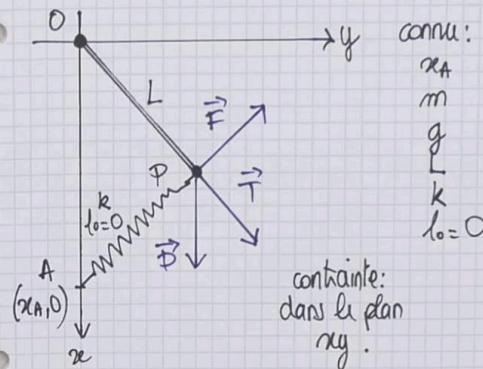 O
y
connu:
x_A
m
g
L
k
l₀=0
L
F⃗
P
T⃗
k
l₀=0
P⃗
A
(x_A,0)
x
contrainte:
dans le plan
xy.